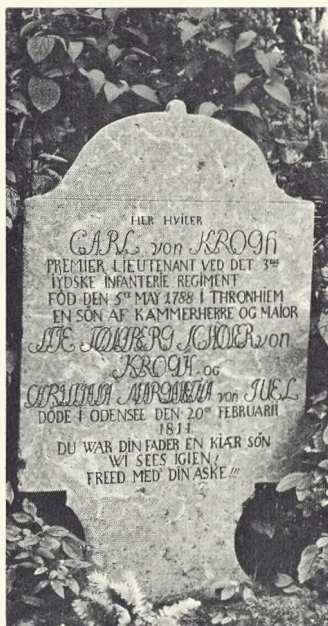 HER HVILER
CARL von KROGH
PREMIER LIEUTENANT VED DET 3die
IYDSKE INFANTERIE REGIMENT
FÖD DEN 5te MAY 1788 I THRONHIEM
EN SÖN AF KAMMERHERRE OG MAIOR
von
KROGH OG
MARGRETA von IUEL
DÖDE I ODENSEE DEN 20de FEBRUARII
1811
DU WAR DIN FADER EN KIÆR SÖN
WI SEES IGIEN!
FREED MED DIN ASKE!!!